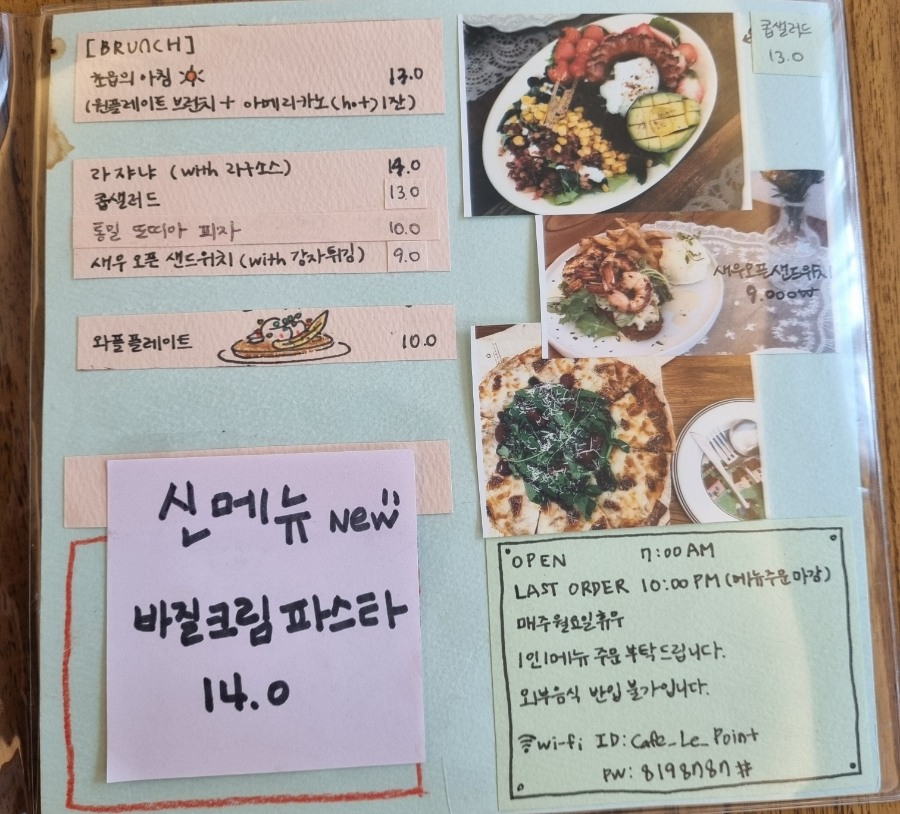 [BRUNCH]
초읍의 아침 13.0
(원플레이트 브런치 + 아메리카노(hot)1잔)
라쟈냐 (with 라구소스) 14.0
콥샐러드 13.0
통밀 또띠아 피자 10.0
새우 오픈 샌드위치 (with 감자튀김) 9.0
와플플레이트 10.0
신메뉴 NEW
바질크림 파스타
14.0
콥샐러드
13.0
새우오픈샌드위치
9.000₩
OPEN 7:00 AM
LAST ORDER 10:00 PM (메뉴주문 마감)
매주 월요일 휴무
1인 1메뉴 주문 부탁드립니다.
외부음식 반입 불가입니다.
wi-fi ID: Cafe_Le_Point
PW: 8198787#